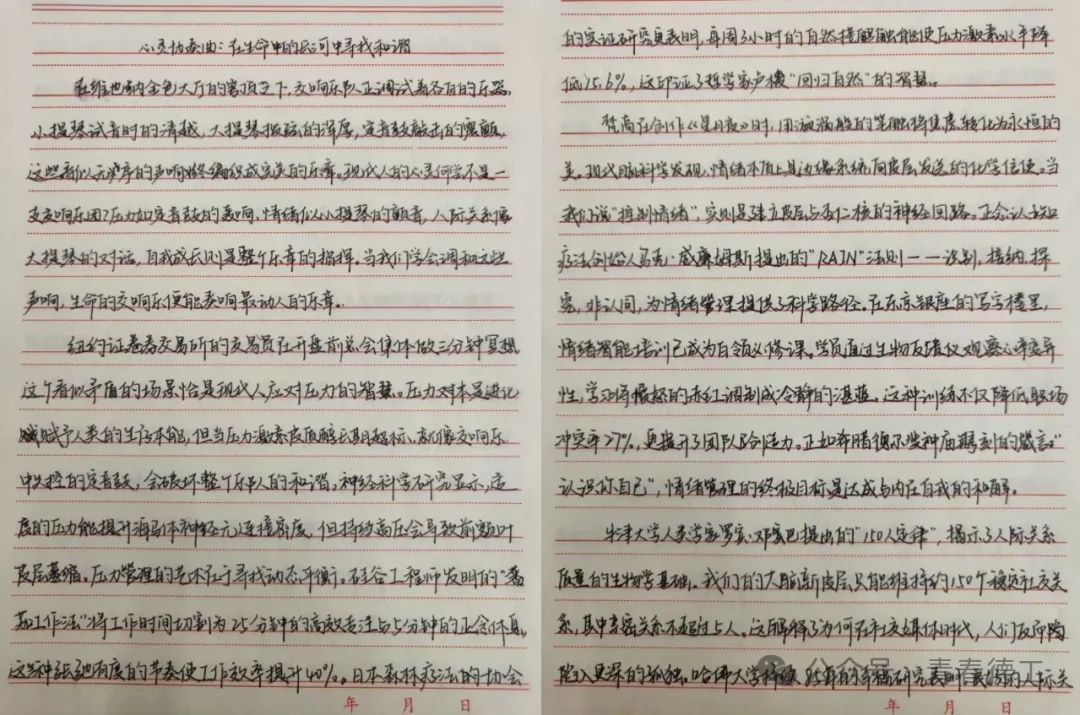 心灵协奏曲：在生命中的长河中寻找和谐
在维也纳金色大厅的穹顶之下，交响乐队正调试着各自的乐器。
小提琴试音时的清越，大提琴拨弦的浑厚，定音鼓敲击的震颤，
这些看似无序的声响终编织成完美的乐章。现代人的心灵何尝不是一
支交响乐团？压力如定音鼓的轰响，情绪似小提琴的颤音，人际关系像
大提琴的对话，自我成长则是整个乐章的指挥。当我们学会调和这些
声响，生命的交响乐便能奏响最动人的乐章。
纽约证券交易所的交易员在开盘前总会集体做三分钟冥想，
这个看似矛盾的场景恰是现代人应对压力的智慧。压力对本是进化
赋予人类的生存本能，但当压力激素皮质醇长期超标，就像交响乐
中失控的定音鼓，会破坏整个乐队的和谐。神经科学研究显示，适
度的压力能提升海马体神经元连接密度，但持续高压会导致前额叶
皮层萎缩。压力管理的艺术在于寻找动态平衡。硅谷工程师发明的"番
茄工作法"将工作时间切割为25分钟的高效专注与5分钟的正念休息，
这种张弛有度的节奏使工作效率提升40%。日本森林疗法的协会
年 月 日
的实证研究员表明，每周3小时的自然接触能使压力激素水平降
低15.6%，这印证了哲学家卢梭"回归自然"的智慧。
梵高在创作《星月夜》时，用漩涡般的笔触将焦虑转化为永恒的
美。现代脑科学发现，情绪本质上是边缘系统向皮层发送的化学信使。当
我们说"控制情绪"，实则是建立皮层与杏仁核的神经回路。正念认知
疗法创始人马克·威廉姆斯提出的"RAIN"法则——识别，接纳，探
究，非认同，为情绪管理提供了科学路径。在东京银座的写字楼里，
情绪智能培训已成为白领必修课。学员通过生物反馈仪观察心率变异
性，学习将愤怒的赤红调制成冷静的湛蓝。这种训练不仅降低职场
冲突率27%，更提升了团队创造力。正如希腊德尔斐神庙镌刻的箴言"
认识你自己"，情绪管理的终极目标是达成与内在自我的和解。
牛津大学人类学家罗宾·邓巴提出的"150人定律"，揭示了人际关系
质量的生物学基础。我们的大脑新皮层只能维持约150个稳定社交关
系，其中亲密关系不超过5人。这解释了为何在社交媒体时代，人们反而陷
入更深的孤独。哈佛大学持续年的幸福研究表明，最好的人际关
年 月 日
公众号·青春德工